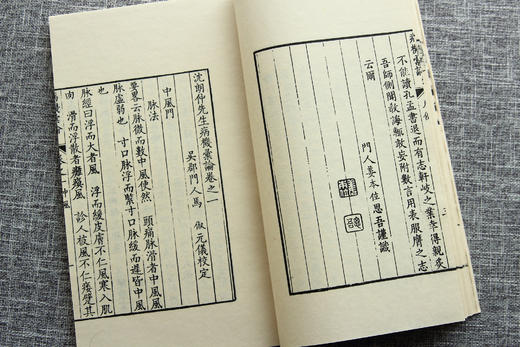 不能讀孔孟書退而有志軒岐之業幸得親炙
吾師側聞欬海輒敢妄附數言用表服膺之志
云爾
門人晏本住思吾謹識
沈朗仲先生病機彙論卷之一
吳郡門人馬俶元儀校定
中風門
脈法
要略云脈微而數中風使然 頭痛脈滑者中風風
脈虛弱也 寸口脈浮而緊寸口脈緩而遲皆中風
也
脈經曰浮而大者風 浮而緩皮膚不仁風寒入肌
肉 滑而浮散者癱瘓風 診人被風不仁痿躄其